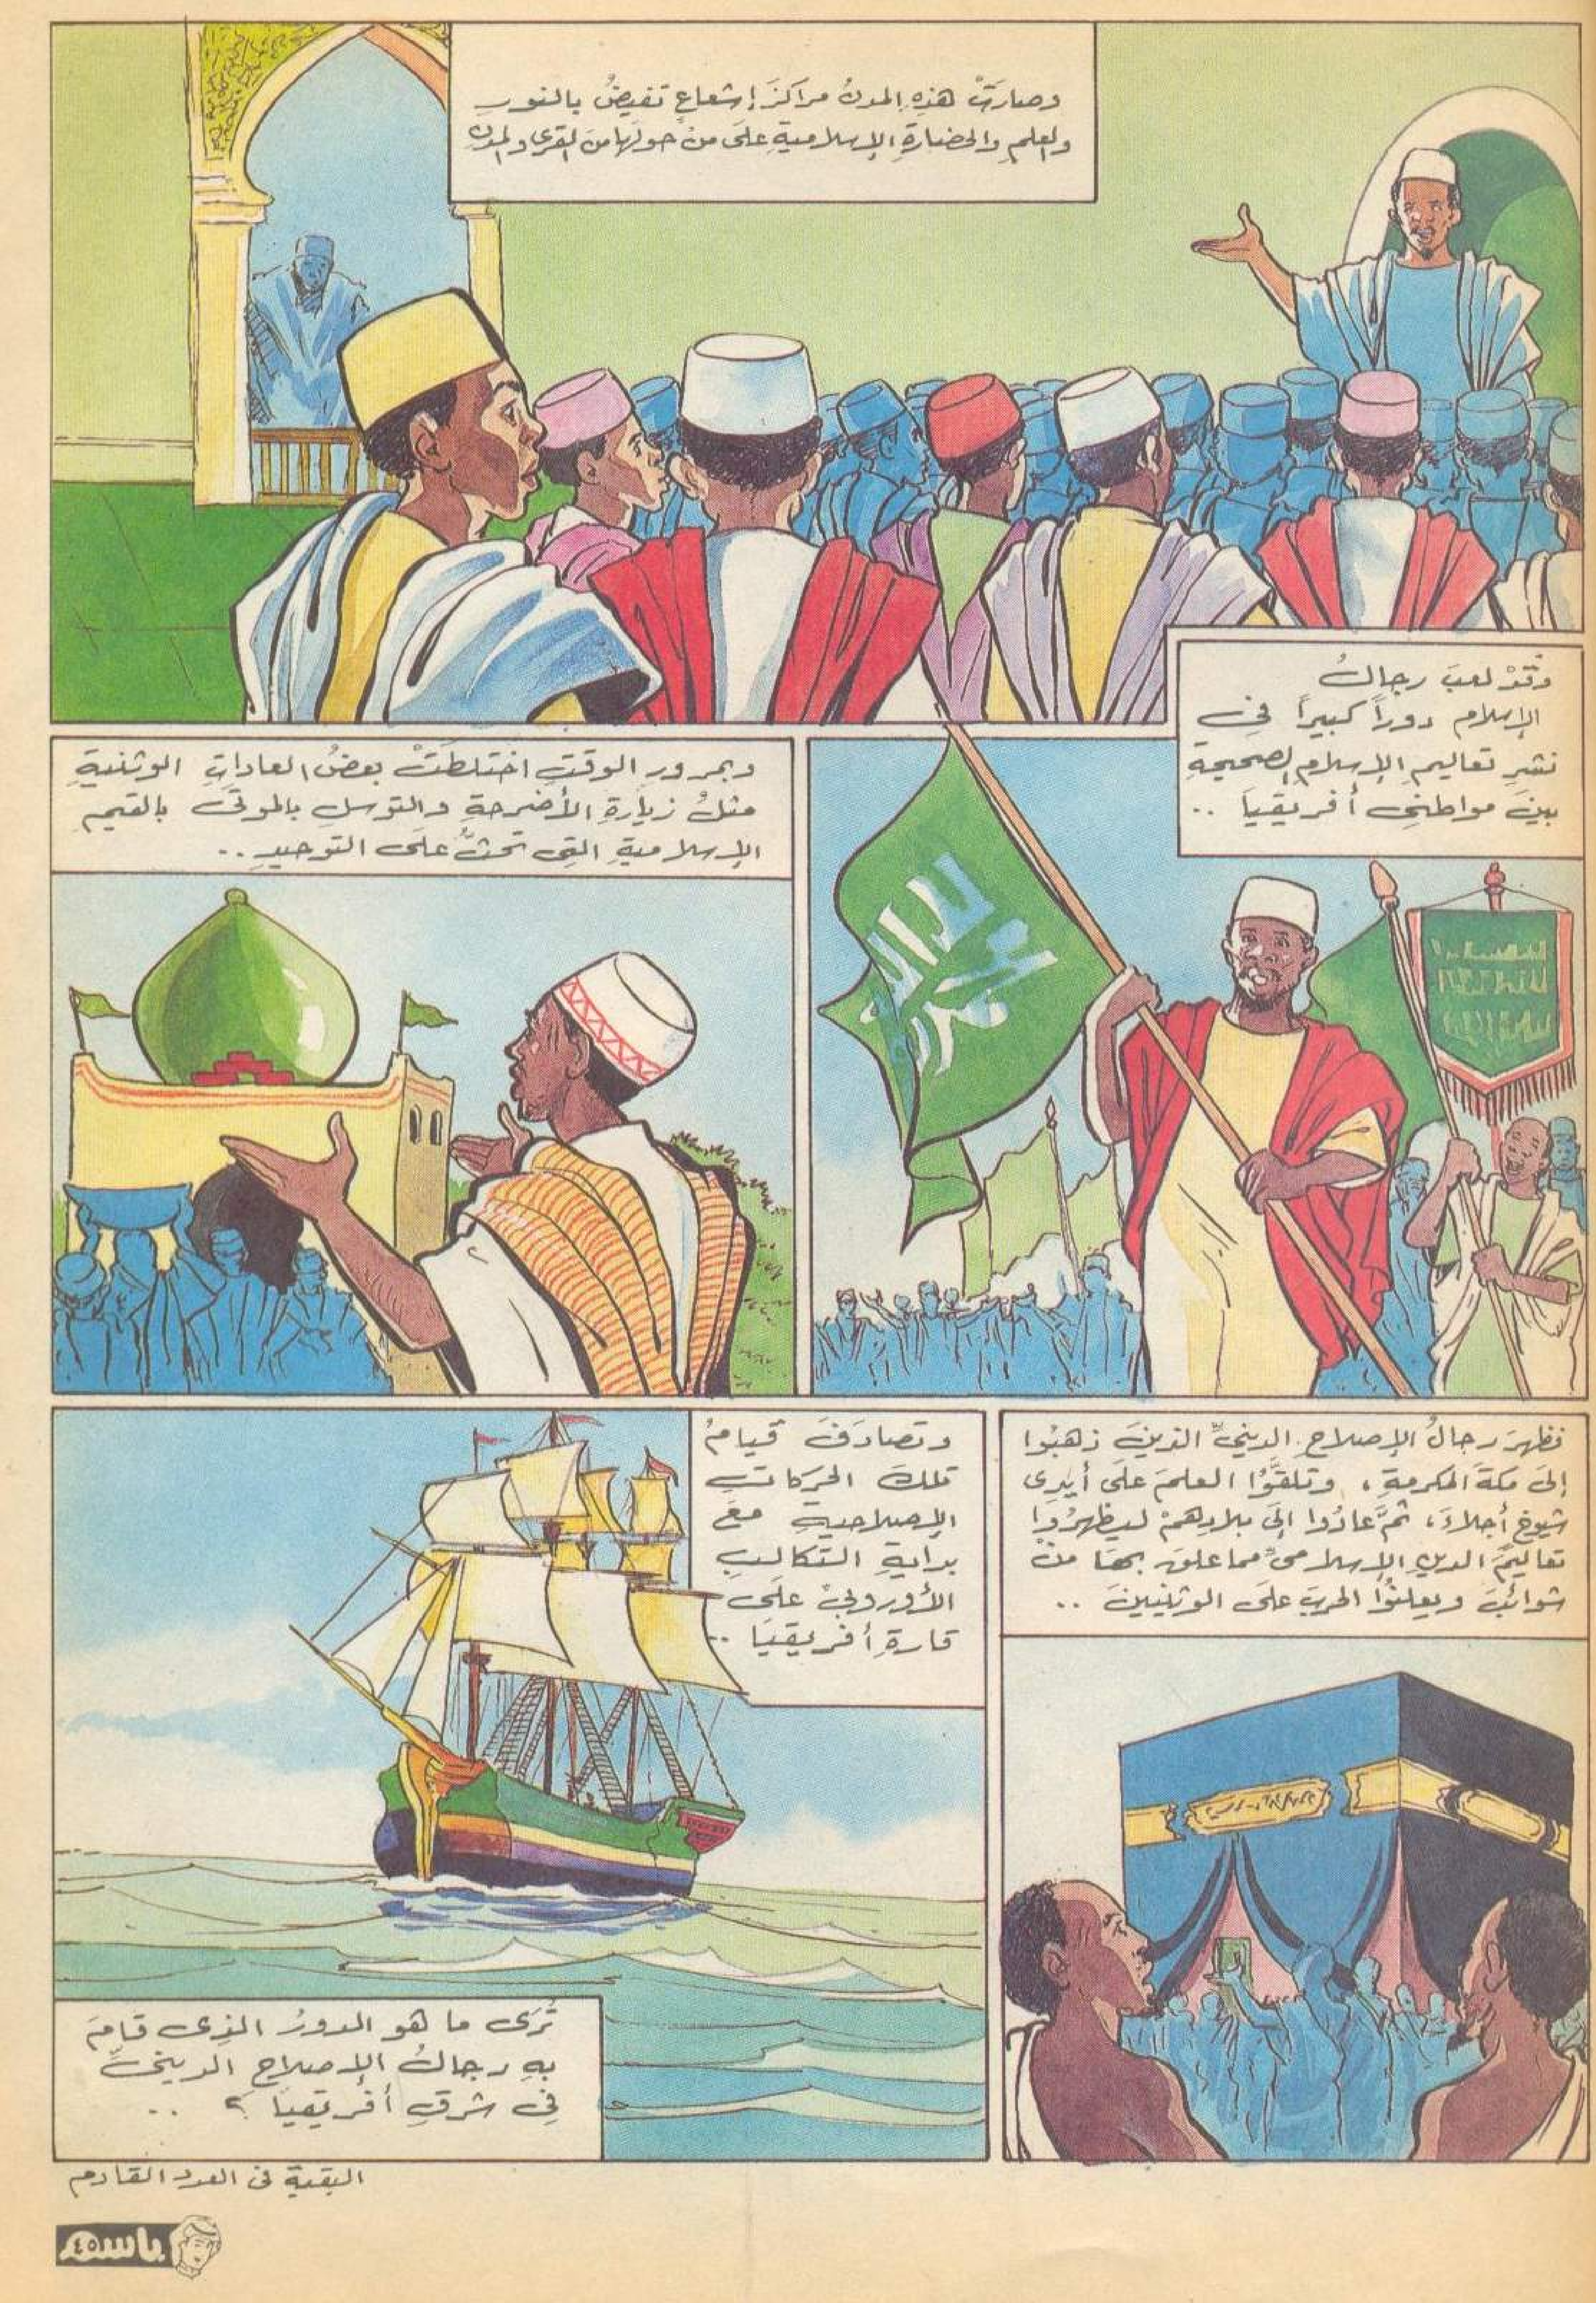 وصارَتْ هذهِ المدنُ مراكزَ إشعاعٍ تفيضُ بالنورِ
والعلمِ والحضارةِ الإسلاميةِ على منْ حولَها منَ القرى والمدنِ
وقدْ لعبَ رجالُ
الإسلامِ دوراً كبيراً في
نشرِ تعاليمِ الإسلامِ الصحيحةِ
بينَ مواطنِي أفريقيا ..
وبمرورِ الوقتِ اختلطَتْ بعضُ العاداتِ الوثنيةِ
مثلُ زيارةِ الأضرحةِ والتوسلِ بالموتَى بالقيمِ
الإسلاميةِ التِي تحثُّ علَى التوحيدِ ..
فظهرَ رجالُ الإصلاحِ الدينيِّ الذينَ ذهبُوا
إلَى مكةَ المكرمةِ ، وتلقَّوُا العلمَ علَى أيدِى
شيوخٍ أجلاءَ ، ثمَّ عادُوا إلَى بلادِهمْ ليظهرُوا
تعاليمَ الدينِ الإسلامىِّ مما علقَ بهَا منْ
شوائبَ ويعلنُوا الحربَ علَى الوثنيينَ ..
وتصادَفَ قيامُ
تلكَ الحركاتِ
الإصلاحيةِ معَ
بدايةِ التكالبِ
الأوروبيِّ علَى
قارةِ أفريقيَا ..
تُرَى ما هو الدورُ الذِى قامَ
بهِ رجالُ الإصلاحِ الدينيِّ
فِى شرقِ أفريقيَا ؟ ..
البقية فى العدد القادم
باسم
٤٥